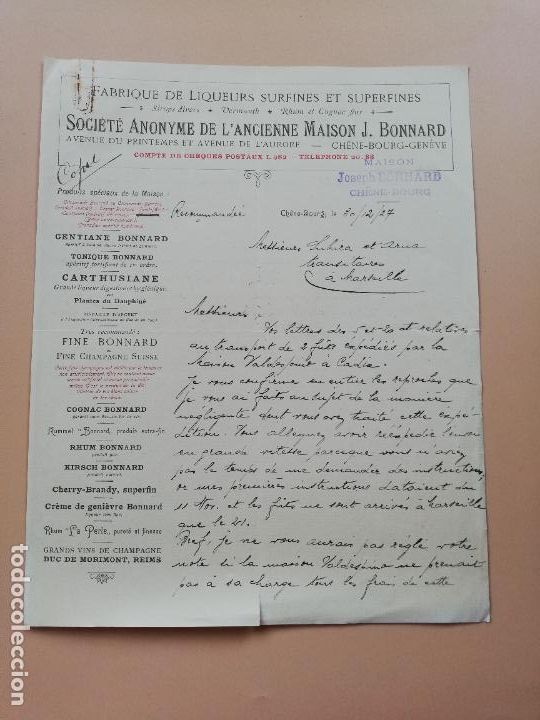 FABRIQUE DE LIQUEURS SURFINES ET SUPERFINES
Sirops divers * Vermouth * Rhum et Cognac fins
SOCIÉTÉ ANONYME DE L'ANCIENNE MAISON J. BONNARD
AVENUE DU PRINTEMPS ET AVENUE DE L'AURORE — CHÊNE-BOURG-GENÈVE
COMPTE DE CHÈQUES POSTAUX I. 982 — TÉLÉPHONE 20.86
MAISON
Joseph BONNARD
CHÊNE-BOURG
Copie
Produits spéciaux de la Maison
GENTIANE BONNARD
TONIQUE BONNARD
apéritif fortifiant de 1er ordre.
CARTHUSIANE
Grande liqueur digestive et hygiénique
aux
Plantes du Dauphiné
MÉDAILLE D'ARGENT
Très recommandé :
FINE BONNARD
ou
FINE CHAMPAGNE SUISSE
COGNAC BONNARD
Kummel "Bonnard, produit extra-fin
RHUM BONNARD
produit pur
KIRSCH BONNARD
Cherry-Brandy, superfin
Crème de genièvre Bonnard
Rhum "La Perle, pureté et finesse
GRANDS VINS DE CHAMPAGNE
DUC DE MORIMONT, REIMS
Recommandée
Chêne-Bourg, le 30/12/27
Messieurs et
transitaires
à Marseille
Messieurs,
Vos lettres des 5 et 20 et relatives
au transport de 2 fûts expédiés par la
Maison Valdespino à Cadix.
Je vous confirme en entier les reproches que
je vous ai faits au sujet de la manière
négligente dont vous avez traité cette expé-
dition. Vous alléguez avoir réexpédié l'envoi
en grande vitesse parceque vous n'avez
pas le temps de me demander des instructions,
or mes premières instructions dataient du
11 Nov. et les fûts ne sont arrivés à Marseille
que le 21.
Bref, je ne vous aurais pas réglé votre
note si la maison Valdespino ne prenait
pas à sa charge tous les frais de cette
todocoleccion.net